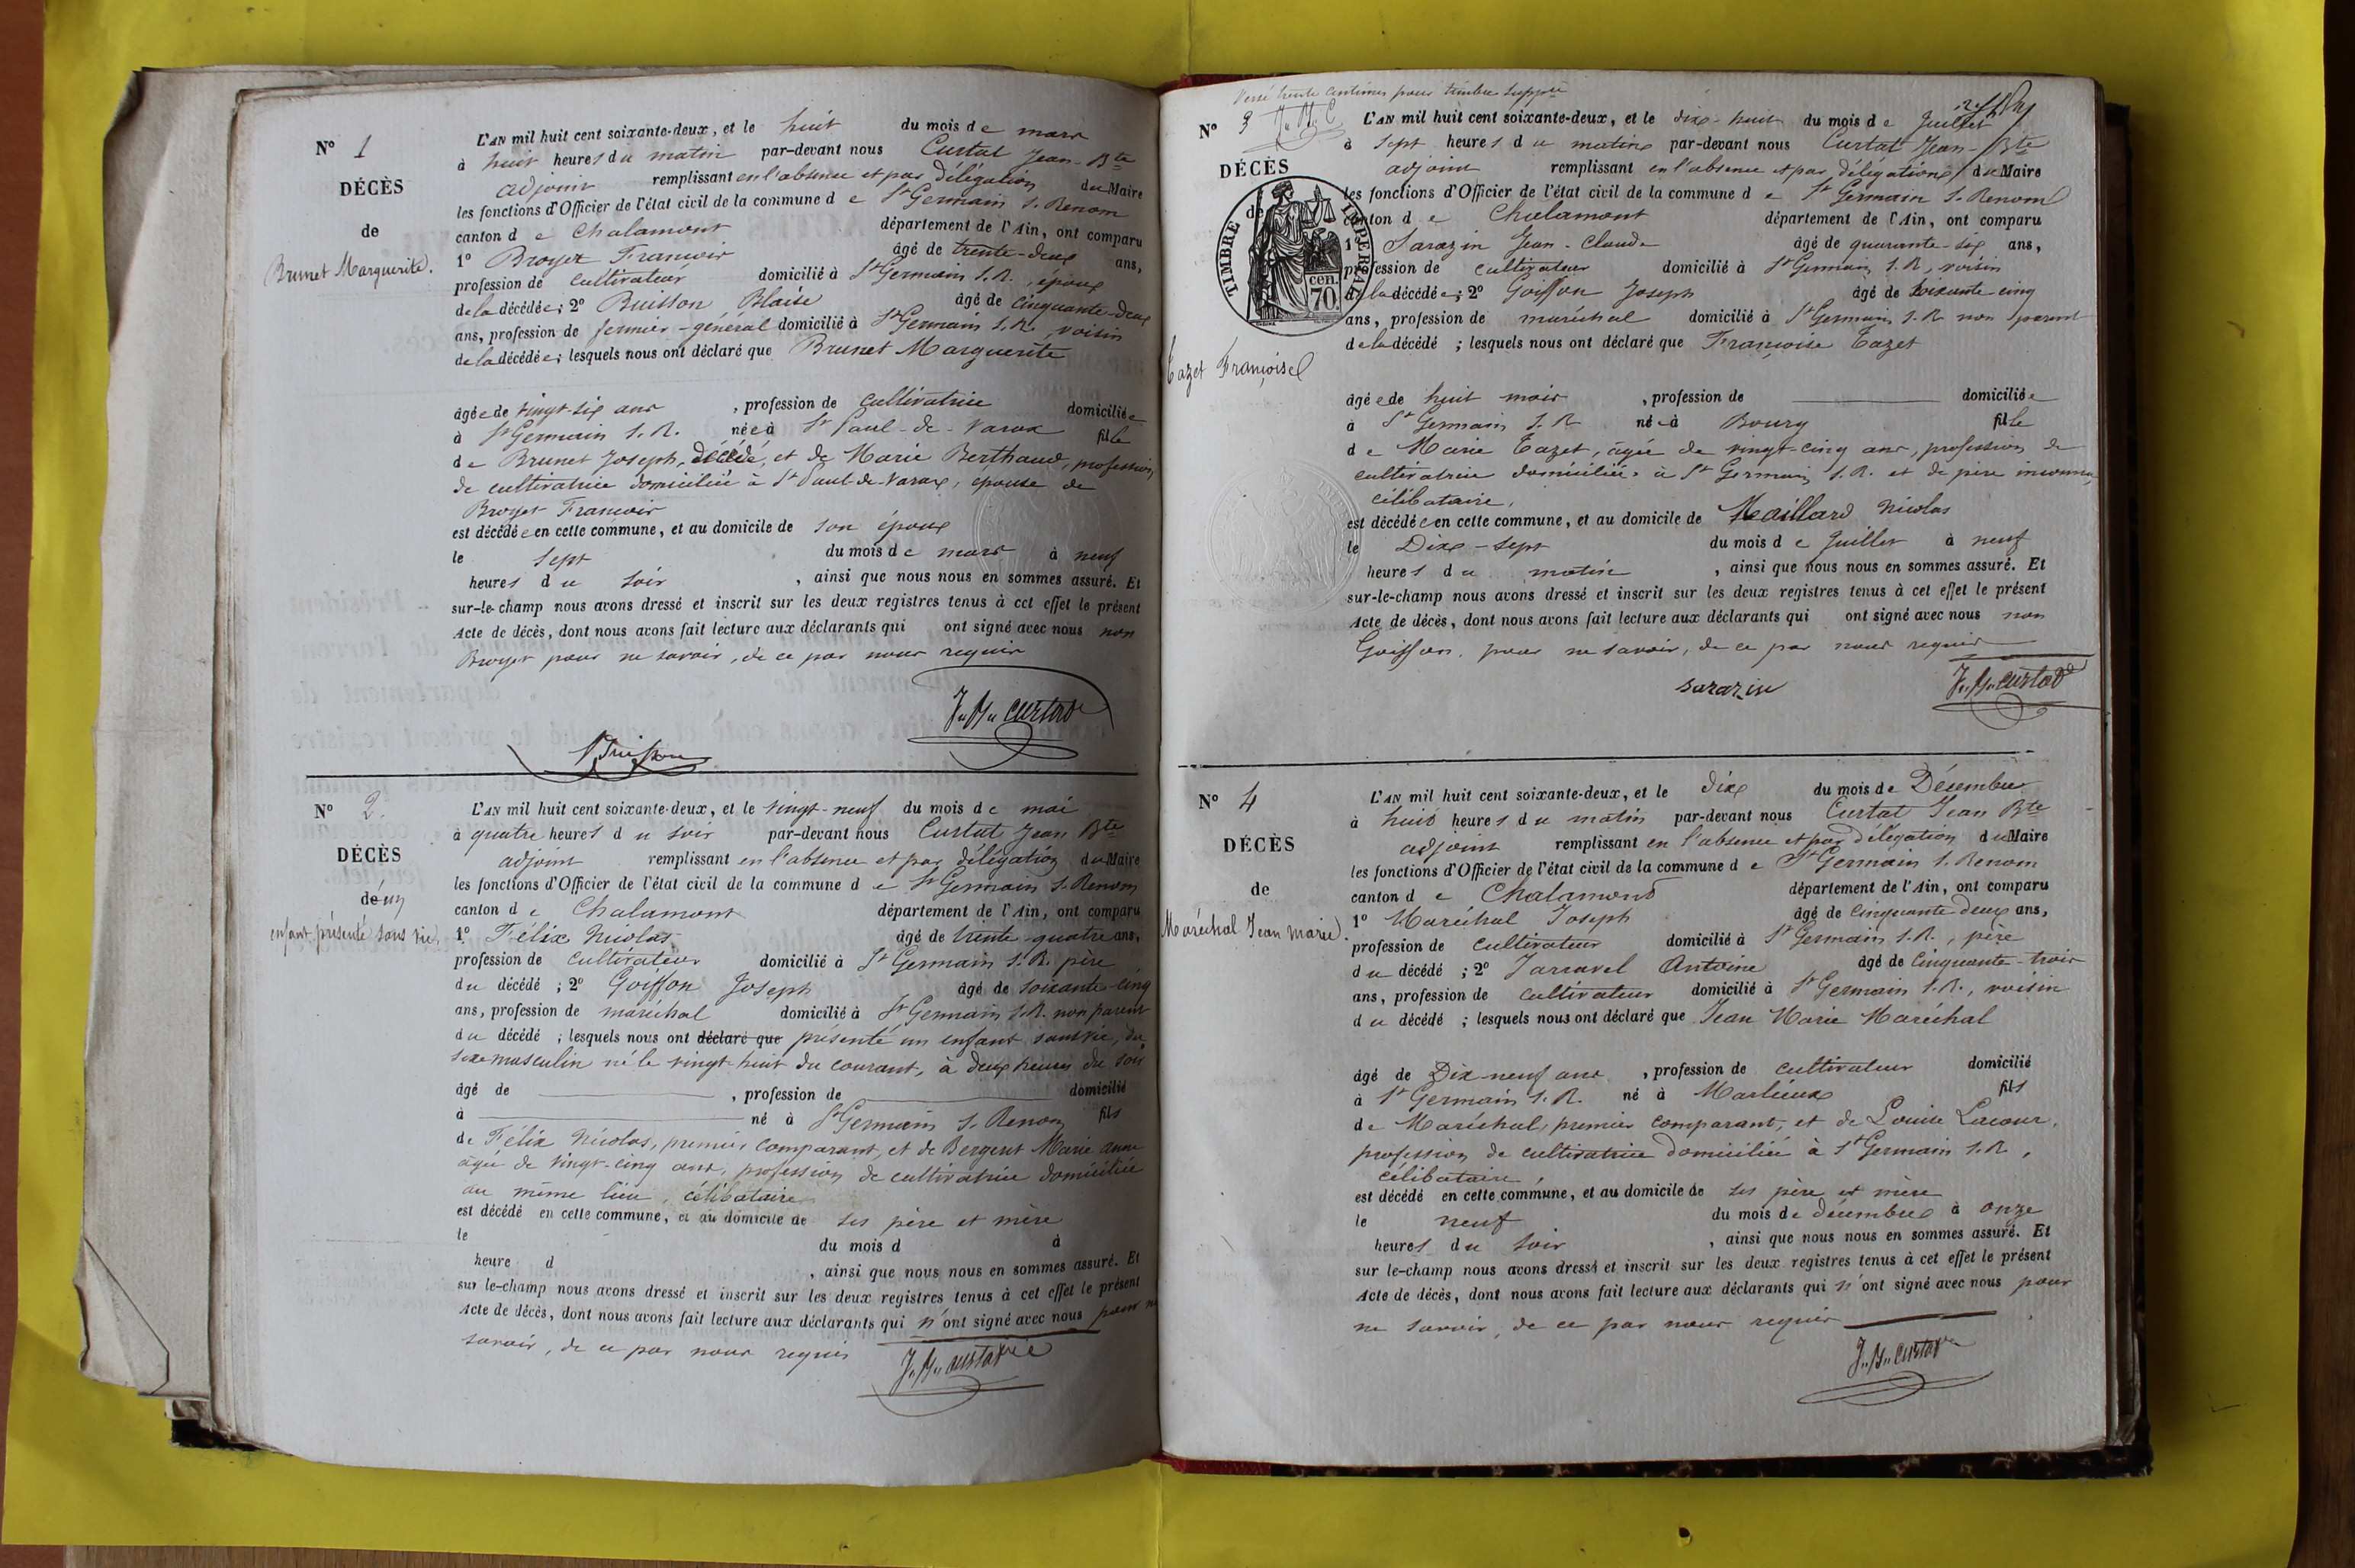 Nº 1
DÉCÈS
de
Brunet Marguerite.
L'AN mil huit cent soixante-deux, et le huit du mois de mars
à huit heures du matin par-devant nous Curtat Jean-Bte
adjoint remplissant en l'absence et par délégation du Maire
les fonctions d'Officier de l'état civil de la commune de St Germain S. Renom
canton de Chalamont département de l'Ain, ont comparu
1º Broyer Francois âgé de trente-deux ans,
profession de cultivateur domicilié à St Germain S.R., époux
de la décédée; 2º Buisson Blaise âgé de cinquante-deux
ans, profession de fermier-général domicilié à St Germain S.R., voisin
de la décédée; lesquels nous ont déclaré que Brunet Marguerite
âgée de vingt-six ans, profession de cultivatrice domiciliée
à St Germain S. R. née à St Paul-de-Varax fille
de Brunet Joseph, décédé, et de Marie Berthaud, profession
de cultivatrice domiciliée à St Paul-de-Varax, épouse de
Broyer Francois
est décédée en cette commune, et au domicile de son époux
le sept du mois de mars à neuf
heures du soir, ainsi que nous nous en sommes assuré. Et
sur-le-champ nous avons dressé et inscrit sur les deux registres tenus à cet effet le présent
Acte de décès, dont nous avons fait lecture aux déclarants qui ont signé avec nous non
Broyer pour ne savoir, de ce par nous requis
J. B. Curtat
Buisson
Nº 2.
DÉCÈS
d'un
enfant présenté sans vie.
L'AN mil huit cent soixante-deux, et le vingt-neuf du mois de mai
à quatre heures du soir par-devant nous Curtat Jean Bte
adjoint remplissant en l'absence et par délégation du Maire
les fonctions d'Officier de l'état civil de la commune de St Germain S. Renom
canton de Chalamont département de l'Ain, ont comparu
1º Félix Nicolas âgé de trente-quatre ans,
profession de cultivateur domicilié à St Germain S. R. père
du décédé; 2º Goiffon Joseph âgé de soixante-cinq
ans, profession de maréchal domicilié à St Germain S.R. non parent
du décédé; lesquels nous ont déclaré que présenté un enfant sans vie, du
sexe masculin né le vingt-huit du courant, à deux heures du soir
âgé de , profession de domicilié
à né à St Germain S. Renom fils
de Félix Nicolas, premier comparant, et de Bergeret Marie Anne
âgée de vingt-cinq ans, profession de cultivatrice domiciliée
au même lieu, célibataire
est décédé en cette commune, et au domicile de ses père et mère
le du mois d à
heure d , ainsi que nous nous en sommes assuré. Et
sur le-champ nous avons dressé et inscrit sur les deux registres tenus à cet effet le présent
Acte de décès, dont nous avons fait lecture aux déclarants qui n'ont signé avec nous pour ne
savoir, de ce par nous requis
J. B. Curtat
Versé trente centimes pour timbre supplre
J. B. C
Nº 3
DÉCÈS
de
TIMBRE IMPÉRIAL
cen.
70
Tazet Françoise
L'AN mil huit cent soixante-deux, et le dix-huit du mois de Juillet
à sept heures du matin par-devant nous Curtat Jean-Bte
adjoint remplissant en l'absence et par délégation du Maire
les fonctions d'Officier de l'état civil de la commune de St Germain S. Renom
canton de Chalamont département de l'Ain, ont comparu
1º Sarazin Jean-Claude âgé de quarante-six ans,
profession de cultivateur domicilié à St Germain S.R., voisin
de la décédée; 2º Goiffon Joseph âgé de soixante-cinq
ans, profession de maréchal domicilié à St Germain S.R. non parent
de la décédé ; lesquels nous ont déclaré que Françoise Tazet
âgée de huit mois, profession de domiciliée
à St Germain S. R née à Bourg fille
de Marie Tazet, âgée de vingt-cinq ans, profession de
cultivatrice domiciliée à St Germain S.R. et de père inconnu,
célibataire,
est décédée en cette commune, et au domicile de Maillard Nicolas
le Dix-sept du mois de Juillet à neuf
heures du matin, ainsi que nous nous en sommes assuré. Et
sur-le-champ nous avons dressé et inscrit sur les deux registres tenus à cet effet le présent
Acte de décès, dont nous avons fait lecture aux déclarants qui ont signé avec nous non
Goiffon, pour ne savoir, de ce par nous requis
sarazin J. B. Curtat
Nº 4
DÉCÈS
de
Maréchal Jean Marie.
L'AN mil huit cent soixante-deux, et le dix du mois de Décembre
à huit heures du matin par-devant nous Curtat Jean Bte
adjoint remplissant en l'absence et par délégation du Maire
les fonctions d'Officier de l'état civil de la commune de St Germain S. Renom
canton de Chalamont département de l'Ain, ont comparu
1º Maréchal Joseph âgé de cinquante deux ans,
profession de cultivateur domicilié à St Germain S.R., père
du décédé ; 2º Jarravel Antoine âgé de cinquante-trois
ans, profession de cultivateur domicilié à St Germain S.R., voisin
du décédé ; lesquels nous ont déclaré que Jean Marie Maréchal
âgé de Dix-neuf ans, profession de cultivateur domicilié
à St Germain S.R. né à Marlieux fils
de Maréchal, premier comparant, et de Louise Lacour,
profession de cultivatrice domiciliée à St Germain S.R,
célibataire,
est décédé en cette commune, et au domicile de ses père et mère
le neuf du mois de décembre à onze
heures du soir, ainsi que nous nous en sommes assuré. Et
sur le-champ nous avons dressé et inscrit sur les deux registres tenus à cet effet le présent
Acte de décès, dont nous avons fait lecture aux déclarants qui n'ont signé avec nous pour
ne savoir, de ce par nous requis
J. B. Curtat